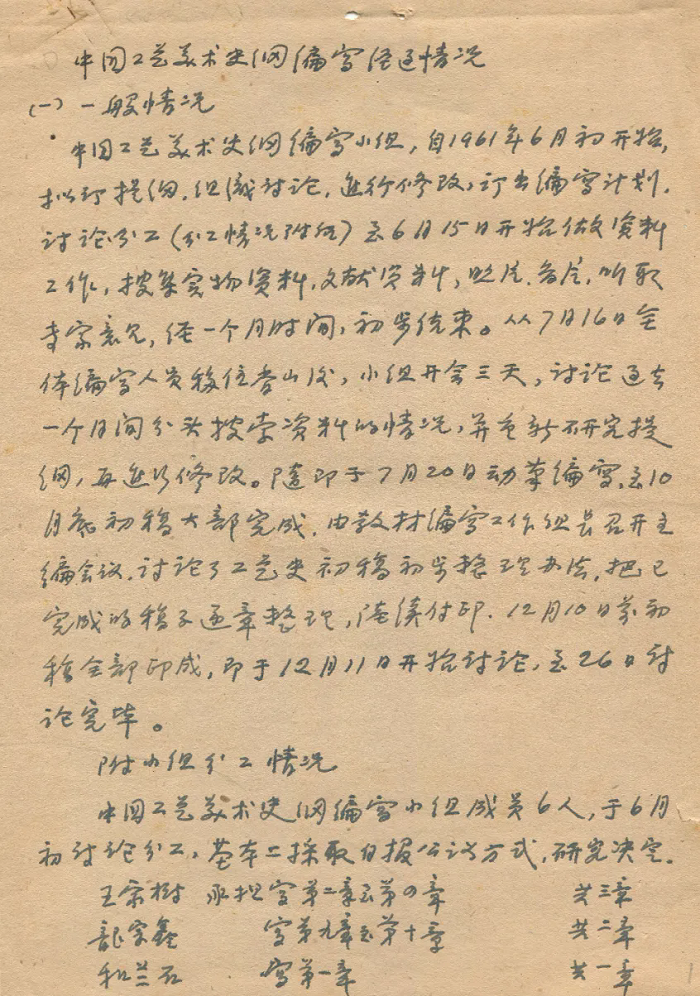 中国工艺美术史纲编写经过情况
(一) 一般情况
中国工艺美术史纲编写小组，自1961年6月初开始，
拟订提纲，组织讨论，进行修改，订出编写计划，
讨论分工（分工情况附后）至6月15日开始做资料
工作，搜集实物资料，文献资料，照片、图片，听取
专家意见，经一个月时间，初步结束。从7月16日全
体编写人员移住香山后，小组开会三天，讨论过去
一个月间分头搜索资料的情况，并重新研究提
纲，再进行修改。随即于7月20日动笔编写，至10
月底初稿大部完成，由教材编写工作组长召开主
编会议，讨论了工艺史初稿初步整理办法，把已
完成的稿子逐章整理，陆续付印．12月10日前初
稿全部印成，即于12月11日开始讨论，至26日讨
论完毕。
附小组分工情况
中国工艺美术史纲编写小组成员6人，于6月
初讨论分工，基本上採取自报公议方式，研究决定．
王家树 承担写第二章至第四章 共三章
龍宗鑫 写第九章至第十章 共二章
和兰石 写第一章 共一章